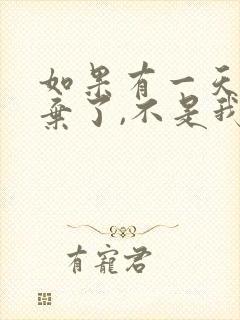 如果有一天
弃了,不是我
有宠君